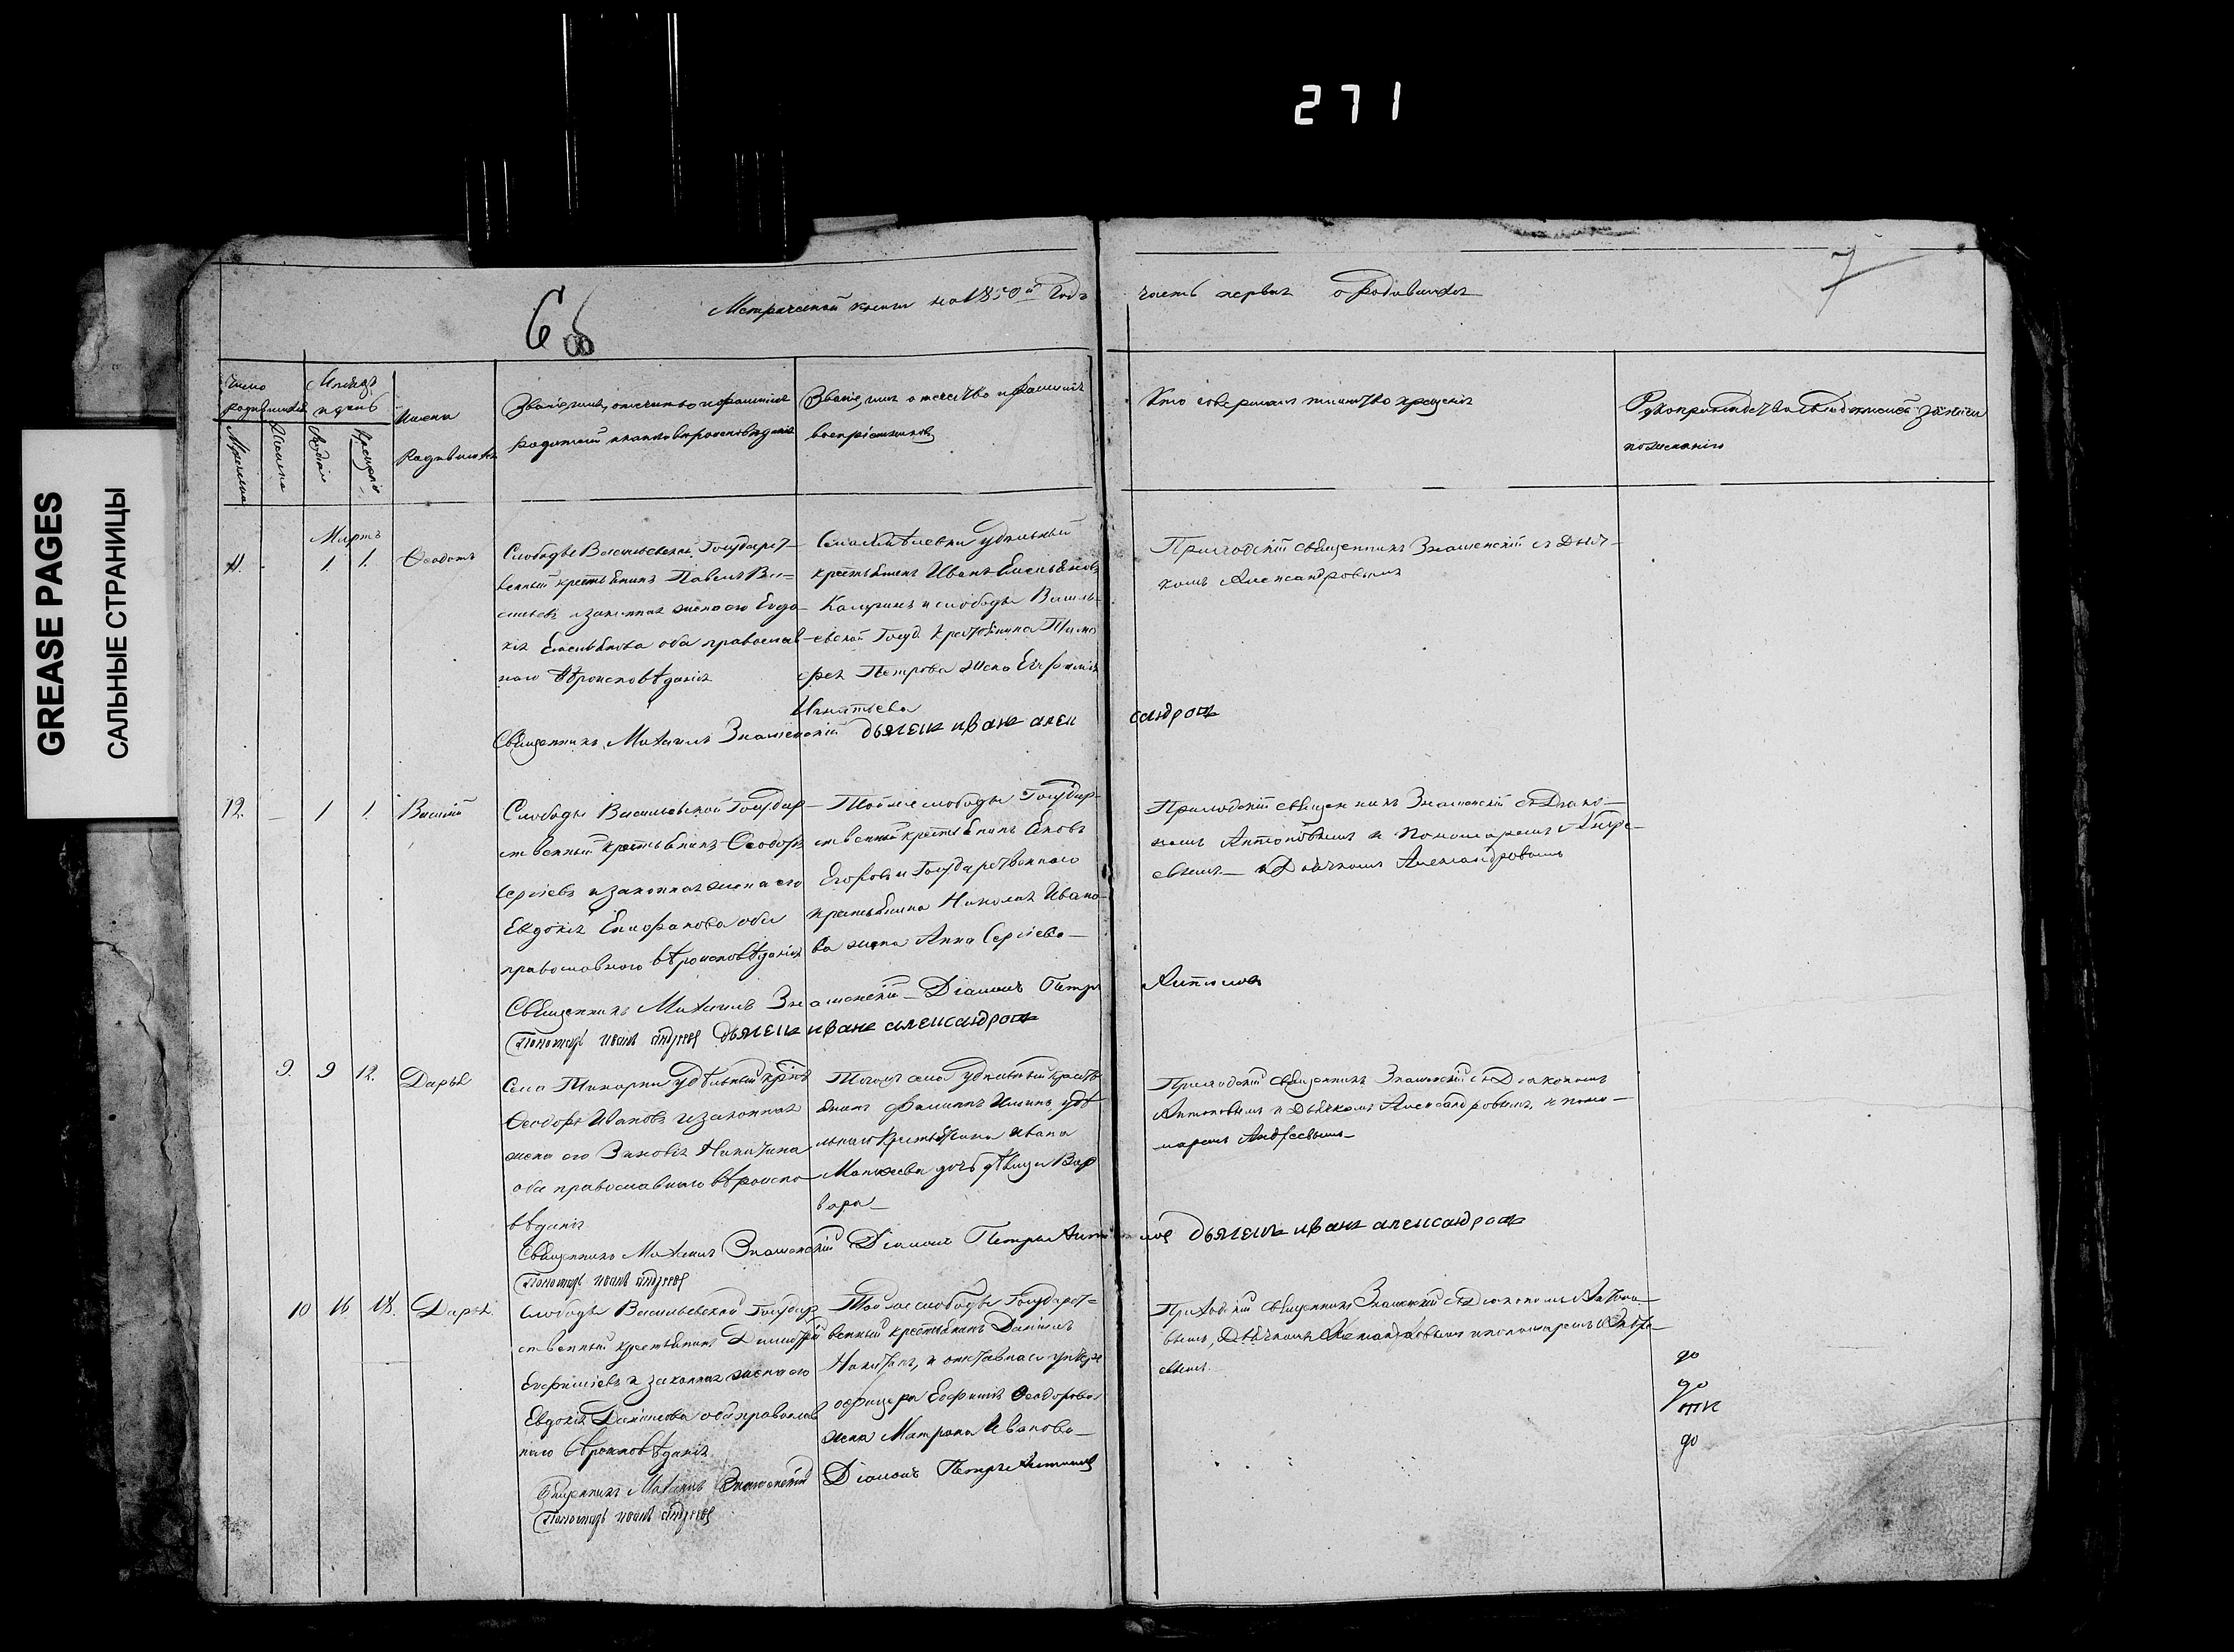 271
GREASE PAGES
САЛЬНЫЕ СТРАНИЦЫ
Метрической книги на 1850й Годъ часть первая о родившихся
7
Число родившихся
Мѣсяцъ и день
Имена Родившихся
Званіе, имя, отчество и фамилія
родителей и какого вѣроисповѣданія
Званіе, имя отчество и фамилія
воспріемниковъ
Кто совершалъ таинство крещенія
Рукоприкладство свидѣтелей записи
по желанію
Мужеска
Женска
Рожденія
Крещенія
Мартъ
11. - 1 1. Ѳеодотъ
Слободы Васильевской Государст-
венный крестьянинъ Павелъ Ва-
сильевъ и законная жена его Евдо-
кія Емельянова оба православ-
наго вѣроисповѣданія
удѣльный
крестьянинъ Иванъ Емельяновъ
и слободы Василь-
евской Госуд. крестьянина Тимо
фея Петрова жена Евфимія
Игнатьева
Приходскій священникъ Знаменскій съ Дьяч-
комъ Александровымъ
Священникъ Михаилъ Знаменскій дьячекъ иванъ алек сандровъ
12. - 1 1. Василій
Слободы Васильевской Государ-
ственный крестьянинъ Ѳеодоръ
Сергіевъ и законная жена его
Евдокія Епифанова оба
православнаго вѣроисповѣданія
Той же слободы Государ-
ственный крестьянинъ Яковъ
Егоровъ и Государственнаго
крестьянина Николая Ивано-
ва жена Анна Сергіева
Приходскій священникъ Знаменскій съ Діако-
номъ Антоновымъ и Пономаремъ Андре-
евымъ и Дьячкомъ Александровымъ
Священникъ Михаилъ Знаменскій Діаконъ Петръ Антоновъ
Пономарь иванъ андреевъ дьячекъ иванъ александровъ
9. 9 12. Дарья
Села удѣльный
Ѳеодоръ Ивановъ и законная
жена его Зиновія Никитина
оба православнаго вѣроиспо-
вѣданія
Тогожъ села удѣльный кресть
янинъ Филиппъ Ильинъ удѣ
льнаго крестьянина Ивана
дочь дѣвица Вар
вара
Приходскій священникъ Знаменскій съ Діакономъ
Антоновымъ и Дьячкомъ Александровымъ, и поно-
маремъ Андреевымъ
Священникъ Михаилъ Знаменскій Діаконъ Петръ Антоновъ дьячекъ иванъ александровъ
Пономарь иванъ андреевъ
10 16 18. Дарья
Слободы Васильевской Государ
ственный крестьянинъ Димитрій
Евфиміевъ и законная жена его
Евдокія Данилова оба православ
наго вѣроисповѣданія
Той же слободы Государст-
венный крестьянинъ Даніилъ
Никитинъ, и отставнаго унтеръ
офицера Евфимія Ѳеодорова
жена Матрона Иванова
Приходскій священникъ Знаменскій съ Діакономъ Антоно-
вымъ, Дьячкомъ Александровымъ и пономаремъ Андре-
евымъ
Священникъ Михаилъ Знаменскій Діаконъ Петръ Антоновъ
Пономарь иванъ андреевъ